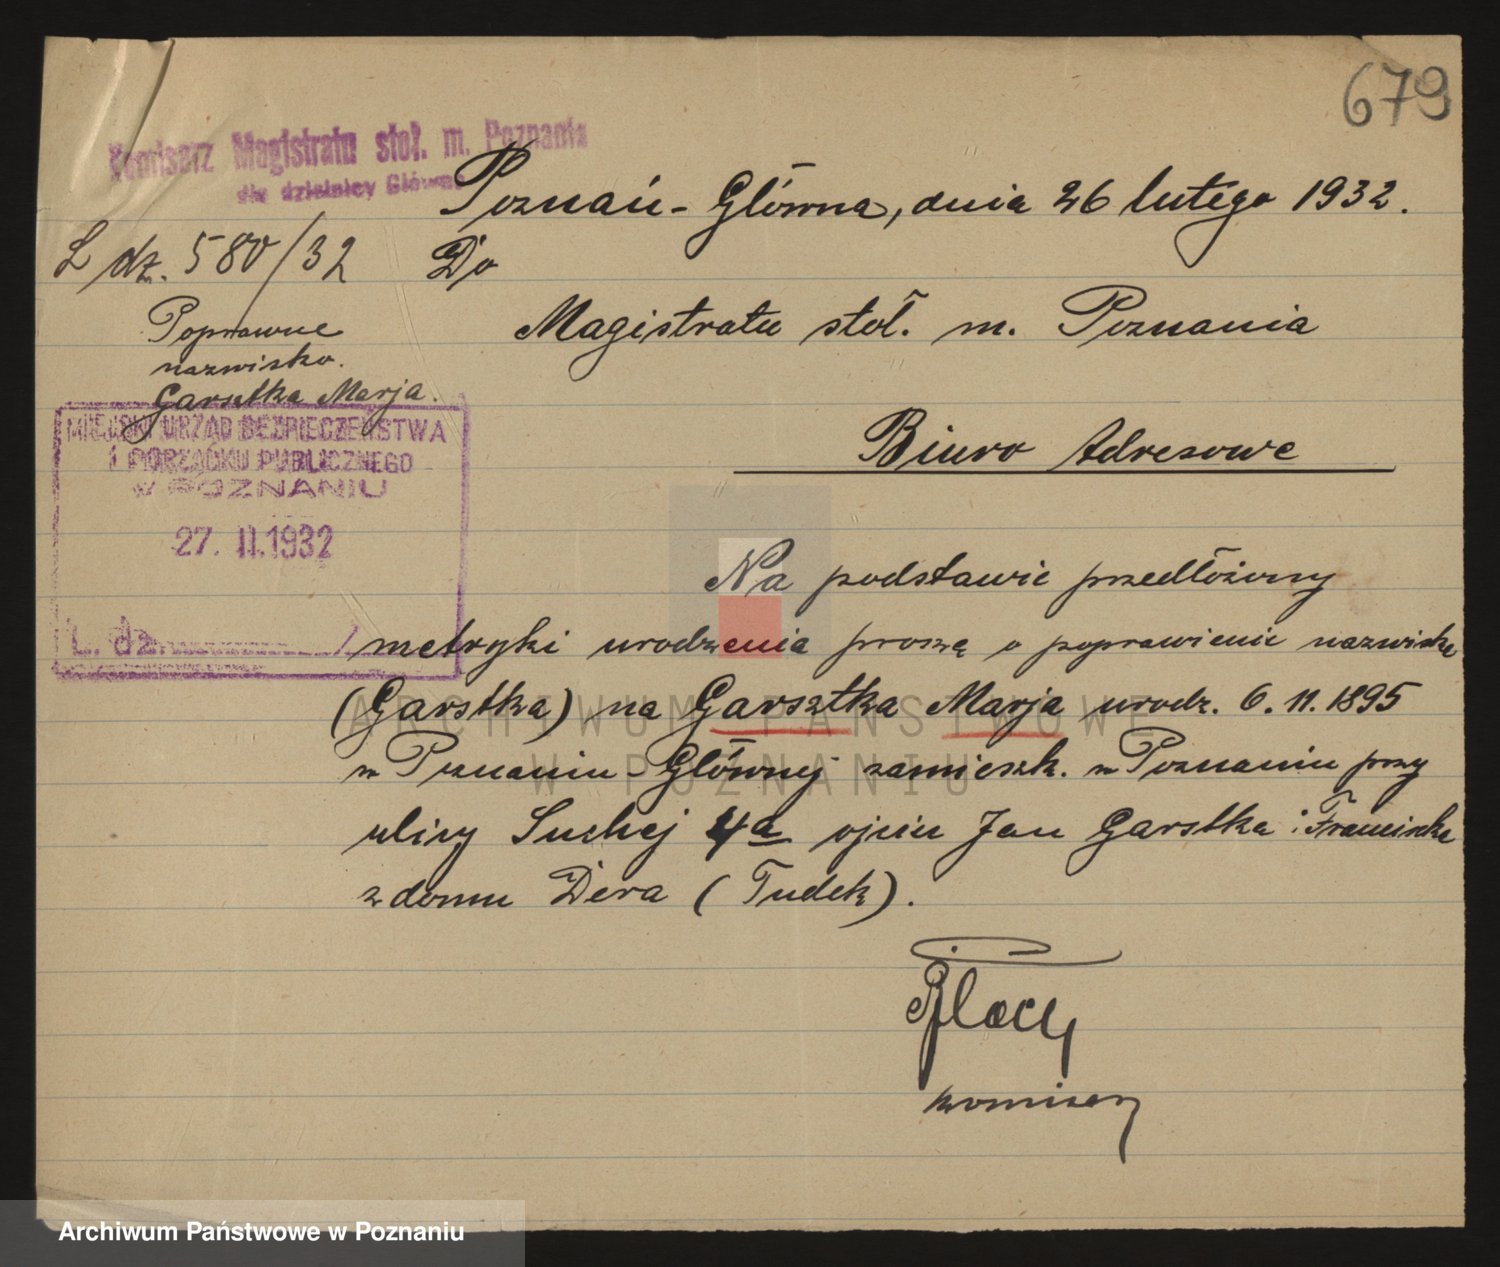 679
Komisarz Magistratu stoł. m. Poznania
dla dzielnicy Główna
Poznań - Główna, dnia 26 lutego 1932.
L dz. 580/32
Do
Poprawne
nazwisko.
Garsztka Marja.
Magistratu stoł. m. Poznania
MIEJSKI URZĄD BEZPIECZEŃSTWA
I PORZĄDKU PUBLICZNEGO
w POZNANIU
27. II. 1932
L. dz. /
Biuro Adresowe
Na podstawie przedłożony
metryki urodzenia proszę o poprawienie nazwiska
(Garstka) na Garsztka Marja urodz. 6. 11. 1895
w Poznaniu-Głównej zamieszk. w Poznaniu przy
ulicy Suchej 4a ojciec Jan Garstka i Franciszka
z domu Dera (Tudek).
komisarz
ARCHIWUM PAŃSTWOWE
W POZNANIU
Archiwum Państwowe w Poznaniu